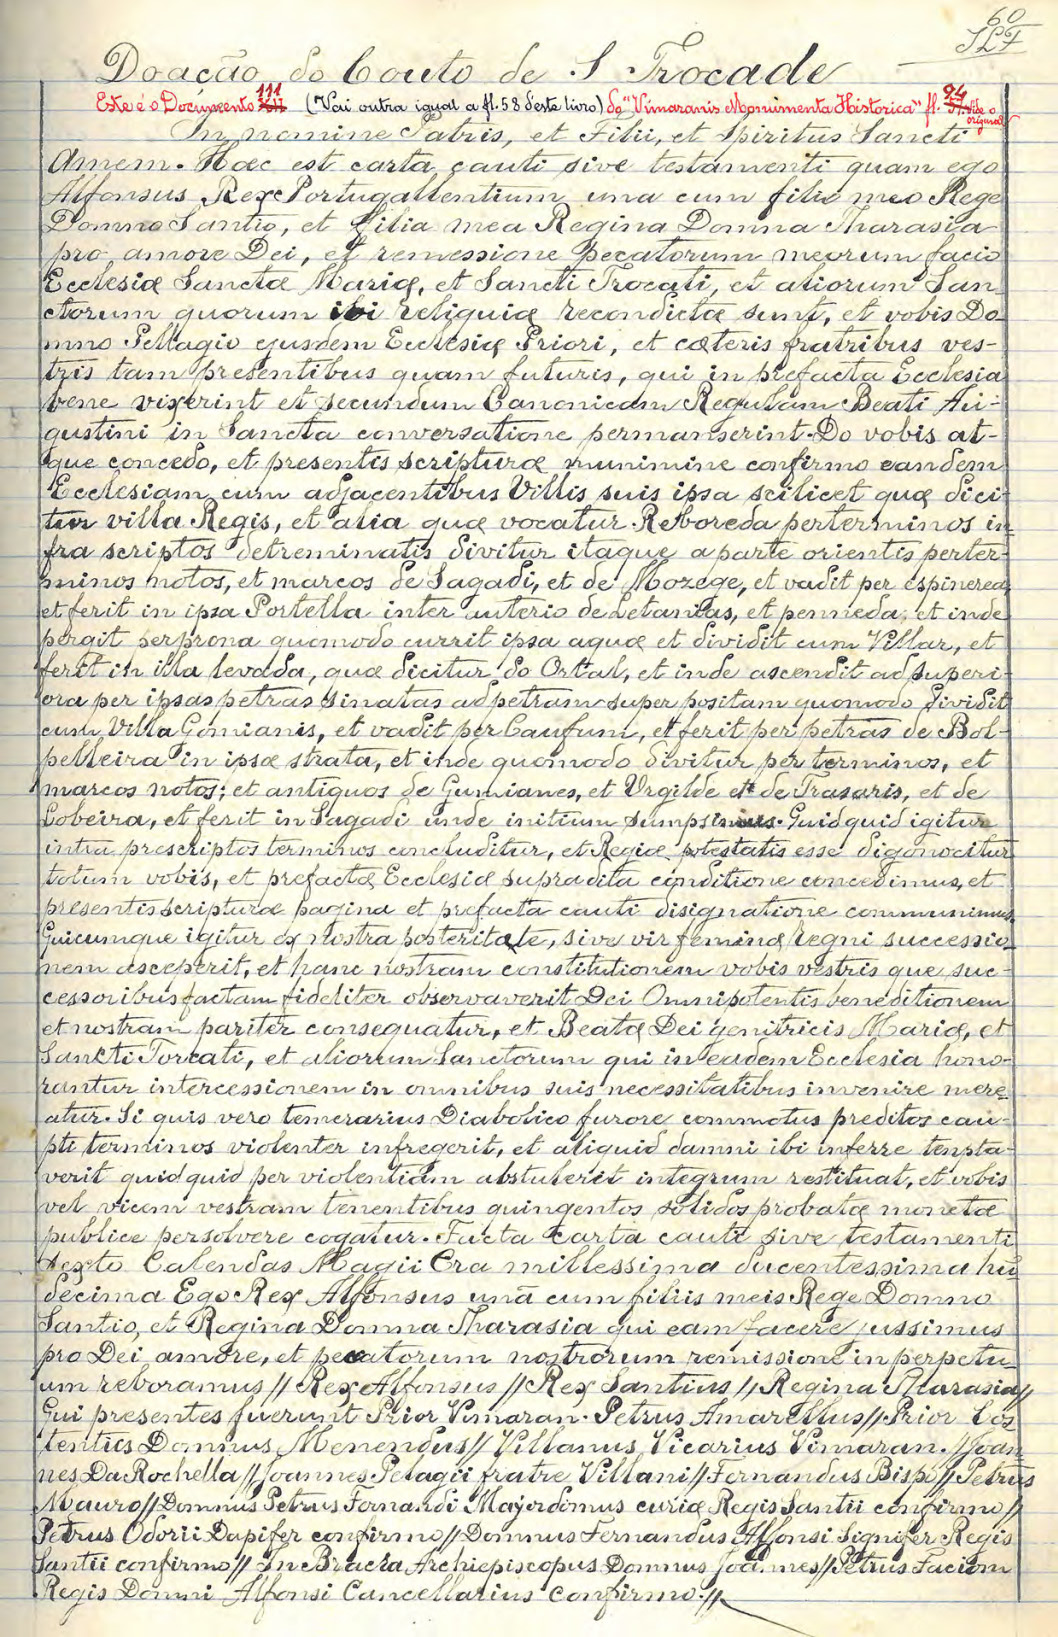 60
Doação do Couto de S Trocade
111
94
Este é o Documento XII (Vai outra igual a fl. 58 d'este livro) do "Vimaranis Monumenta Historica" fl.
original
In nomine Patris, et Filii, et Spiritus Sancti
Amem. Haec est carta cauti sive testamenti quam ego
Alfonsus Rex Portugallentium una cum filio meo Rege
Domno Santio, et filia mea Regina Domna Tharasia
pro amore Dei, et remessione pecatorum meorum facio
Ecclesiæ Sanctæ Mariæ, et Sancti Trocati, et aliorum San-
ctorum quorum ibi reliquiæ recondictæ sunt, et vobis Do-
mno Pellagio ejusdem Ecclesiæ Priori, et cæteris fratribus ves-
tris tam presentibus quam futuris, qui in prefacta Ecclesia
bene vixerint et secundum Canonicam Regulam Beati Au-
gustini in Sancta conversatione permanserint. Do vobis at-
que concedo, et presentis scripturæ munimine confirmo eandem
Ecclesiam cum adjacentibus Villis suis ipsa scilicet quæ dici-
tur villa Regis, et alia quæ vocatur Reboreda perterminos in
fra scriptos detreminatis divitur itaque a parte orientis perter-
minos notos, et marcos de Sagadi, et de Mozege, et vadit per espinerea
et ferit in ipsa Portella inter uterio de Letanias, et penneda, et inde
pergit perprona quomodo currit ipsa aquæ et dividit cum Villar, et
ferit in illa levada, quæ dicitur do Ortal, et inde ascendit ad superi-
ora per ipsas petras sinatas ad petram super positam quomodo dividit
cum Villa Gomianis, et vadit per Caufum, et ferit per petras de Bol-
pelleira in ipsæ strata, et inde quomodo divitur per terminos, et
marcos notos; et antiquos de Gumianes, et Urgilde et de Trasaris, et de
Lobeira, et ferit in Sagadi unde initium sumpsimus. Quidquid igitur
intra prescriptos terminos concluditur, et Regiæ potestatis esse digonocitur
totum vobis, et prefactæ Ecclesiæ supradita conditione concedimus, et
presentis scripturæ pagina et prefacta cauti disignatione communimus
Quicumque igitur ex nostra posteritate, sive vir feminæ regni successio-
nem asceperit, et hanc nostram constitutionem vobis vestris que suc-
cessoribus factam fideliter observaverit Dei Omnipotentis beneditionem
et nostram pariter consequatur, et Beatæ Dei genitricis Mariæ, et
Sancti Torcati, et aliorum Sanctorum qui in eadem Ecclesia hono-
rantur intercessionem in omnibus suis necessitatibus invenire mere-
atur. Si quis vero temerarius Diabolico furore commotus preditos cau-
pti terminos violenter infregerit, et aliquid damni ibi inferre tempta-
verit quidquid per violentiam abstulerit integrum restituat, et vobis
vel vicem vestram tenentibus quingentos solidos probatæ monetæ
publice persolvere cogatur. Facta carta cauti sive testamenti
sexto Calendas Magii Era millessima ducentessima hũ
decima Ego Rex Alfonsus unã cum filiis meis Rege Domno
Santio, et Regina Domna Tharasia qui eam facere jussimus
pro Dei amore, et pecatorum nostrorum remissione in perpetu-
um reboramus // Rex Alfonsus // Rex Santius // Regina Tharasia //
Qui presentes fuerunt Prior Vimaran. Petrus Amarellus // Prior Cos
tentiis Domnus Menendus // Villanus Vicarius Vimaran. // Joan
nes Da Rochella // Joannes Pelagii fratre Villani // Fernandus Bispo // Petrus
Mauro // Domnus Petrus Fernandi Majordomus curiæ Regis Santii confirmo //
Petrus Odorii Dapifer confirmo // Domnus Fernandus Alfonsi Signifer Regis
Santii confirmo // In Bracra Archiepiscopus Domnus Joannes // Petrus Faciom
Regis Domni Alfonsi Cancellarius Confirmo. //